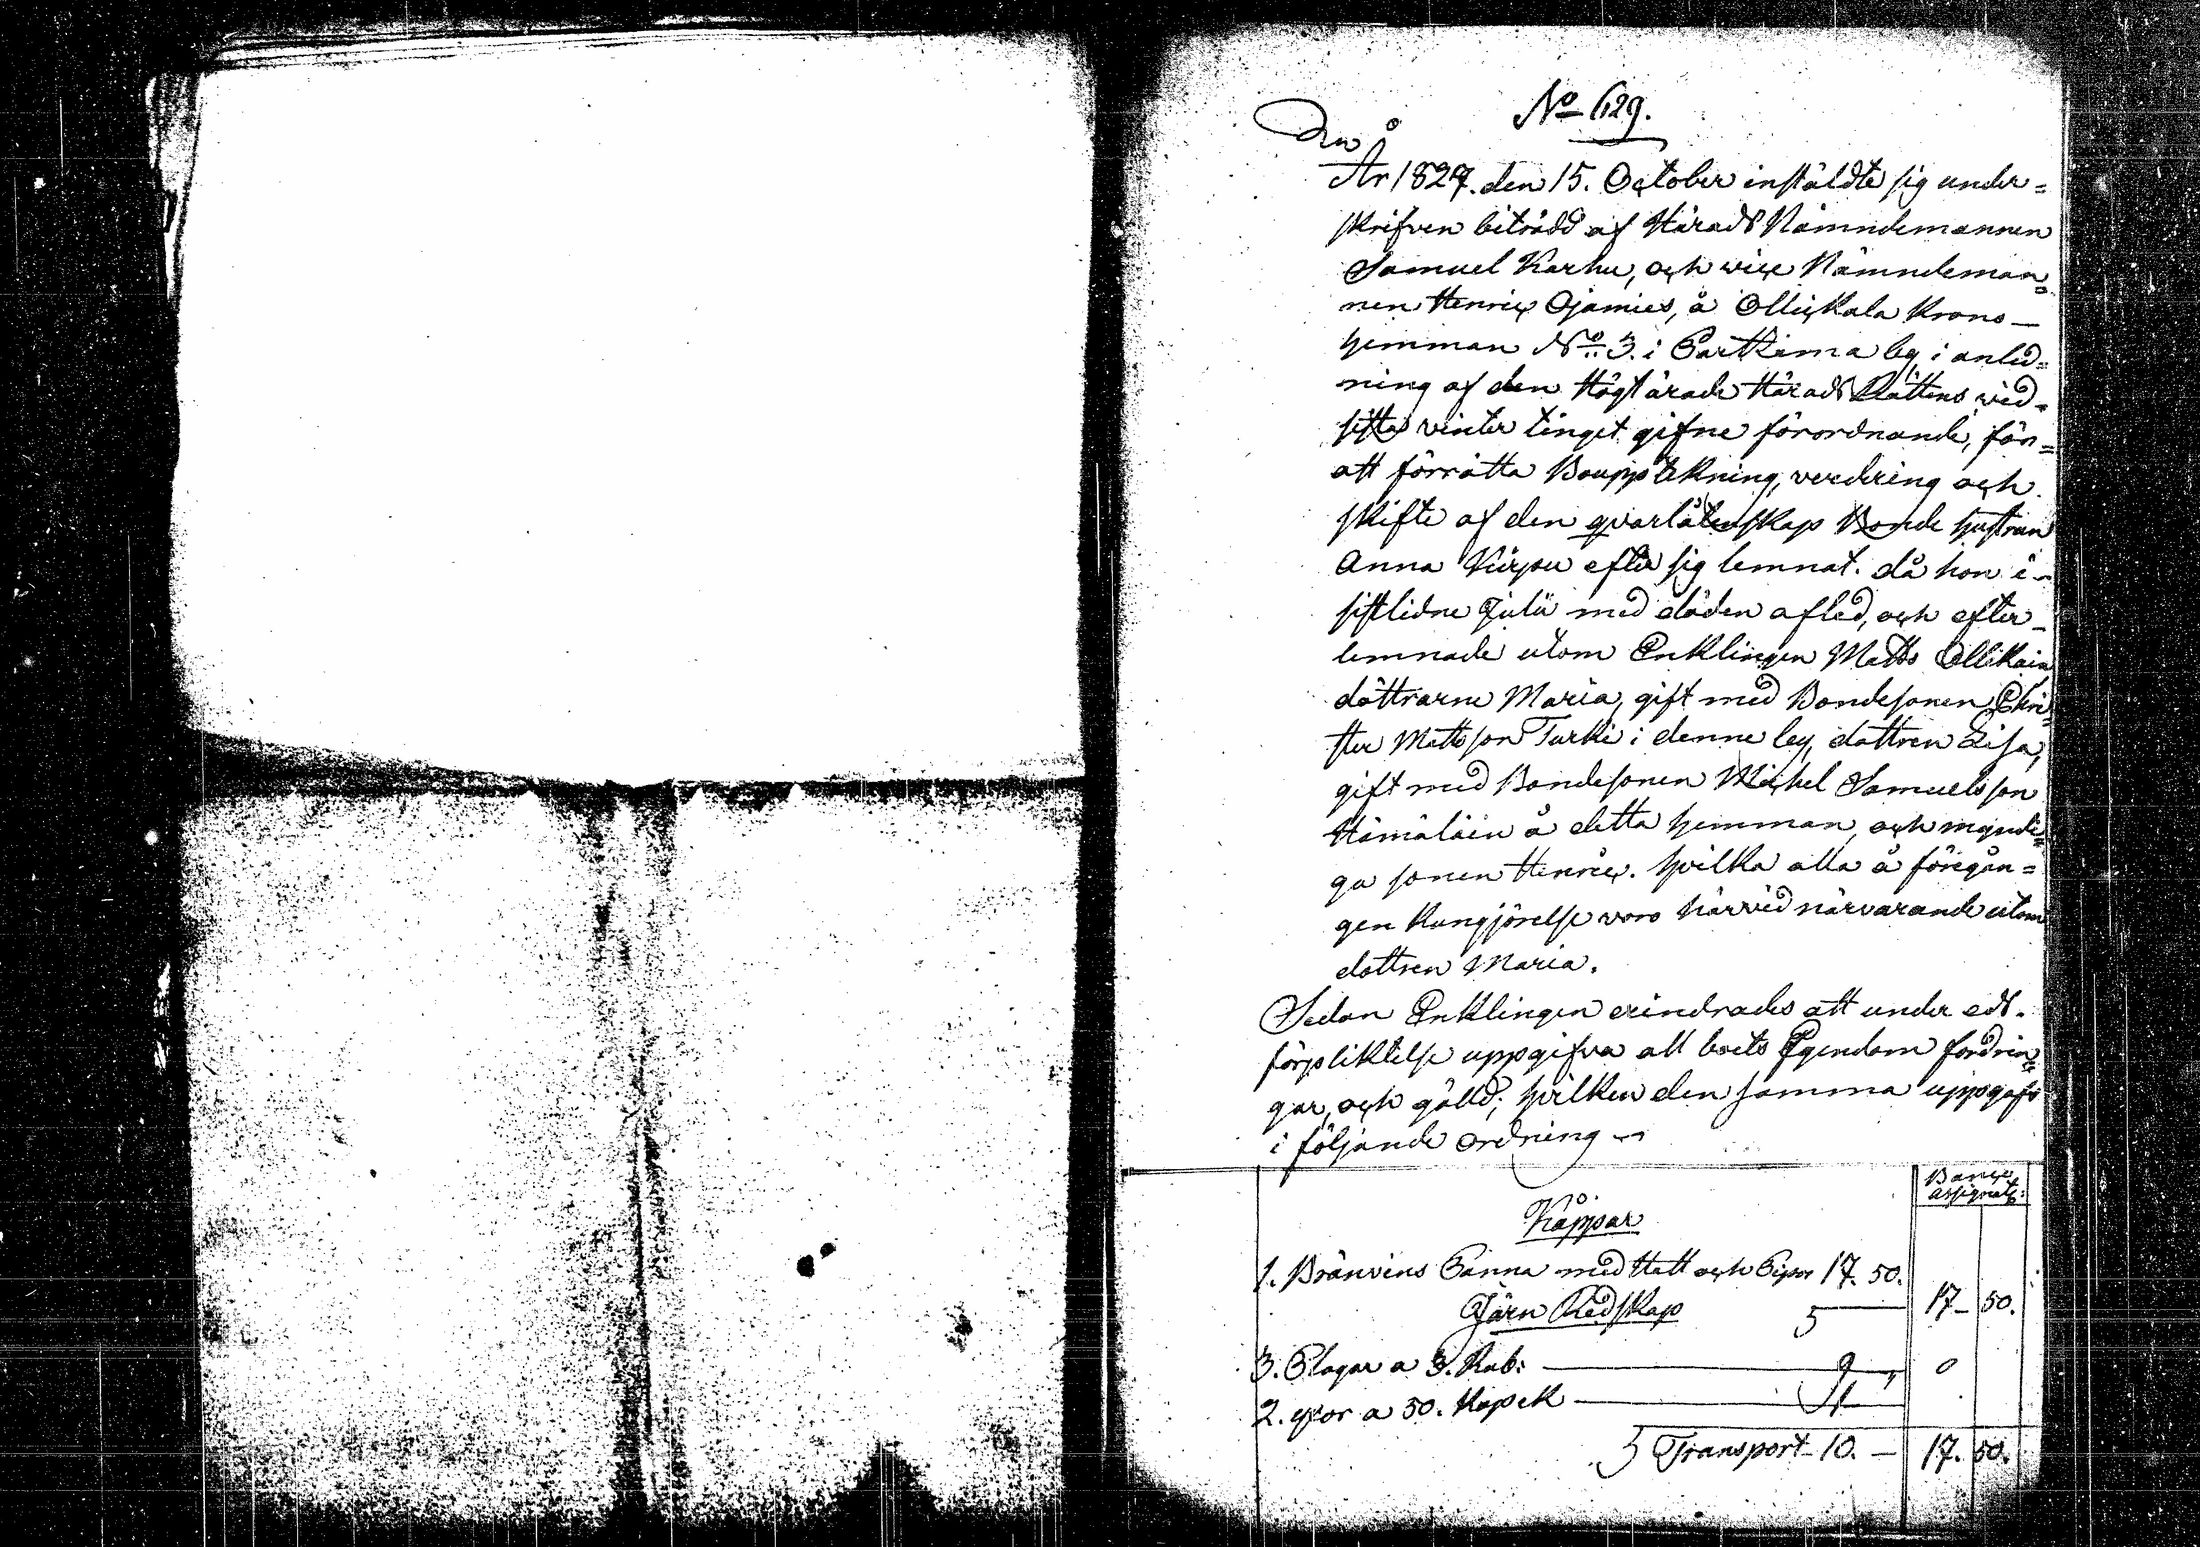 No 629.
År 1827. den 15. October instäldte sig under=
skrifven biträdd af Härads Nämndemannen
Samuel Karhu, och vice Nämndeman=
nen Henric Ojamies, å Ollickala Krono
hemman No 3. i Partkima by, i anled=
ning af den Höglärade Härads Rättens vid
sista vinter tinget gifne förordnande, för
att förrätta Bouppteckning, verdering och
skifte af den qvarlåtenskap Bonde hustrun
Anna Kirjeu efter sig lemnat. då hon i
sistlidne Julii med döden afled, och efter
lemnade utom Enklingen Matts Ollikain
döttrarne Maria, gift med Bondesonen Chri=
ster Mattsson Turki i denne by, dottren Lisa,
gift med Bondesonen Michel Samuelsson
Hämäläin å detta hemman, och myndi=
ga sonen Henric. hvilka alla å föregån=
gen Kungjörelse voro härvid närvarande utom
dottren Maria.
Sedan Enklingen erindrades att under eds
förpliktelse uppgifva all boets Egendom fordrin=
gar, och gälld; hvilken den samma uppgafs
i följande ordning
Banco
Assignat:
Koppar
1. Bränvins Panna med Hatt och Pipor 17. 50.
17 50.
Järn Redskap
3. Plogar a 3. Rub: 9
2. yxor a 50. Kopek 1
Transport 10. 17. 50.